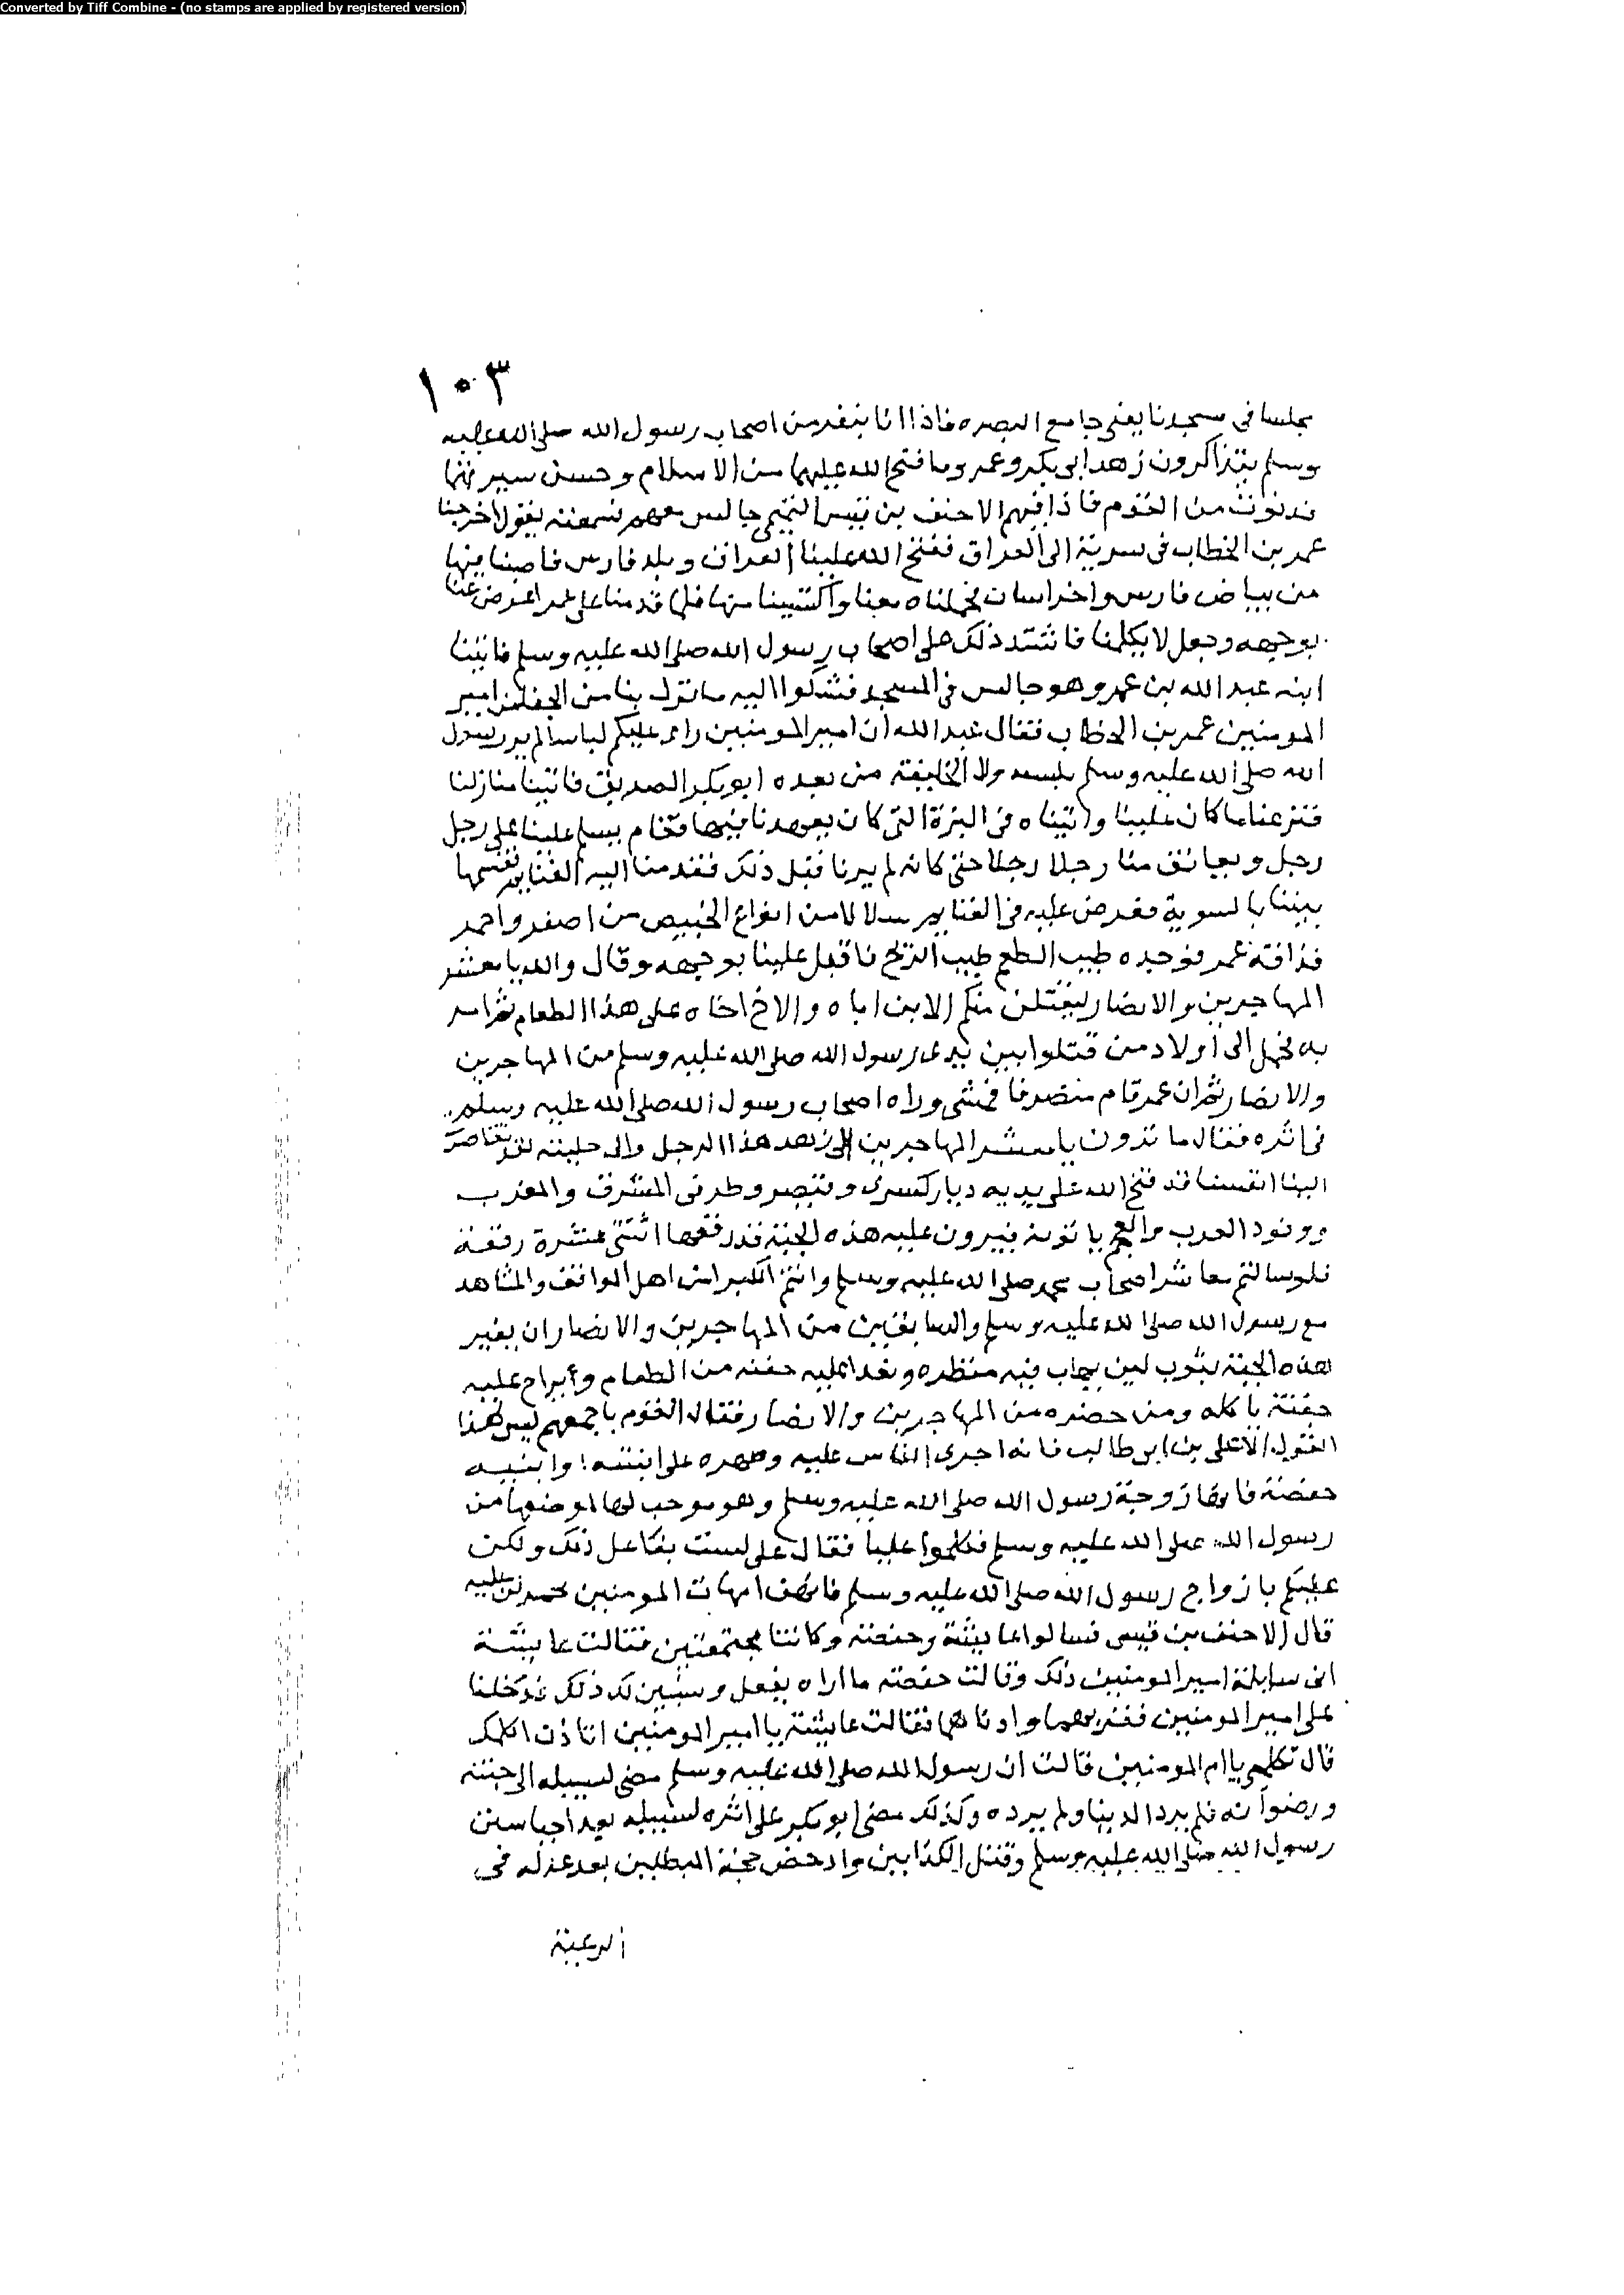 Converted by Tiff Combine - (no stamps are applied by registered version)
١٠٣
مجلسا فى مسجدنا يعنى جامع البصره فاذا انا بنفر من اصحاب رسول الله صلى الله عليه
وسلم يتذاكرون زهد ابى بكر وعمر وما فتح الله عليهما من الاسلام وحسن سيرتهما
فدنوت من القوم فاذا فيهم الاحنف بن قيس التميمى جالس معهم فسمعته يقول اخرجنا
عمر بن الخطاب فى سرية الى العراق ففتح الله علينا العراق وبلد فارس فاصبنا فيها
من بياض فارس واخراسان فحملناه معنا واكتسينا منها فلما قدمنا على عمر اعرض عنا
بوجهه وجعل لا يكلمنا فاشتد ذلك على اصحاب رسول الله صلى الله عليه وسلم فاتينا
ابنه عبد الله بن عمر وهو جالس فى المسجد فشكوا اليه ما نزل بنا من الجفا من امير
المومنين عمر بن الخطاب فقال عبد الله ان امير المومنين راى عليكم لباسا لم ير رسول
الله صلى الله عليه وسلم يلبسه ولا الخليفة من بعده ابو بكر الصديق فاتينا منازلنا
فنزعنا ما كان علينا واتيناه فى البزة التى كان يعهدنا فيها فقام يسلم علينا على رجل
رجل ويعانق منا رجلا رجلا حتى كانه لم يرنا قبل ذلك فقدمنا اليه الغنايم فقسمها
بيننا بالسوية فعرض عليه فى الغنايم سلالا من انواع الخبيص من اصفر واحمر
فذاقه عمر فوجده طيب الطعم طيب الريح فاقبل علينا بوجهه وقال والله يا معشر
المهاجرين والانصار ليقتلن منكم الابن اباه والاخ اخاه على هذا الطعام ثم امر
به فحمل الى اولاد من قتلوا بين يدى رسول الله صلى الله عليه وسلم من المهاجرين
والانصار ثم ان عمر قام منصرفا فمشى وراه اصحاب رسول الله صلى الله عليه وسلم
فى اثره فقال ما ترون يا معشر المهاجرين الى زهد هذا الرجل والى حليته لقد تقاصرت
الينا انفسنا قد فتح الله على يديه ديار كسرى وقيصر وطرفى المشرق والمغرب
ووفود العرب والعجم ياتونه فيرون عليه هذه الجبة قد رقعها اثنتى عشرة رقعة
فلو سالتم معاشر اصحاب محمد صلى الله عليه وسلم وانتم الكبرا من اهل المواقف والمشاهد
مع رسول الله صلى الله عليه وسلم والسابقين من المهاجرين والانصار ان يغير
هذه الجبة بثوب لين يهاب فيه منظره ويغدا عليه جفنه من الطعام ويراح عليه
جفنة ياكله ومن حضره من المهاجرين والانصار فقال القوم باجمعهم ليس لهذا
القول الا على بن ابى طالب فانه اجرى الناس عليه وصهره على ابنته او ابنته
حفصة فانها زوجة رسول الله صلى الله عليه وسلم وهو موجب لها لموضعها من
رسول الله صلى الله عليه وسلم فكلموا عليا فقال على لست بفاعل ذلك ولكن
عليكم بازواج رسول الله صلى الله عليه وسلم فانهن امهات المومنين عليه
قال الاحنف بن قيس فسالوا عايشة وحفصة وكانتا مجتمعتين فقالت عايشة
انى سايلة امير المومنين ذلك وقالت حفصة ما اراه يفعل وسيبين لك ذلك فدخلنا
على امير المومنين فقربهما وادناهما فقالت عايشة يا امير المومنين اتاذن اكلمك
قال تكلمى يا ام المومنين قالت ان رسول الله صلى الله عليه وسلم مضى لسبيله الى جنته
ورضوانه فلم يرد الدنيا ولم يرده وكذلك مضى ابو بكر على اثره لسبيله بعد احيا سنن
رسول الله صلى الله عليه وسلم وقتل الكذابين وادحض حجة المبطلين بعد عدله فى
الرعية